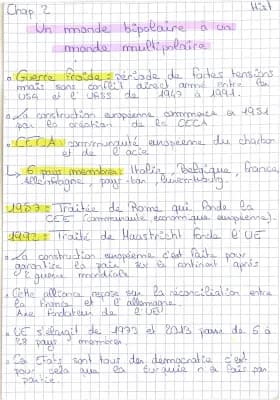 Chap 2 Hist
Un monde bipolaire à un
monde multipolaire
Guerre froide : période de fortes tensions
mais sans conflit direct armé entre les
USA et l'URSS de 1947 à 1991.
La construction européenne commence en 1951
par la création de la CECA
CECA communauté européenne du charbon
et de l'acie
↳ 6 pays membres : Italie, Belgique, France,
Allemagne, pays-bas, Luxembourg
1957 : Traitée de Rome qui fonde la
CEE (communauté économique européenne).
1992 : Traité de Maastricht fonde l'UE
La construction européenne s'est faite pour
garantir la paix sur le continent après
guerre mondiale
Cette alliance repose sur la réconciliation entre
la France et l'allemagne.
Axe fondateur de l'UE
UE s'élargit de 1973 et 2013 passe de 6 à
28 pays membres.
Ces États sont tous des democratie c'est
pour cela que la turquie n'a pas
partie.